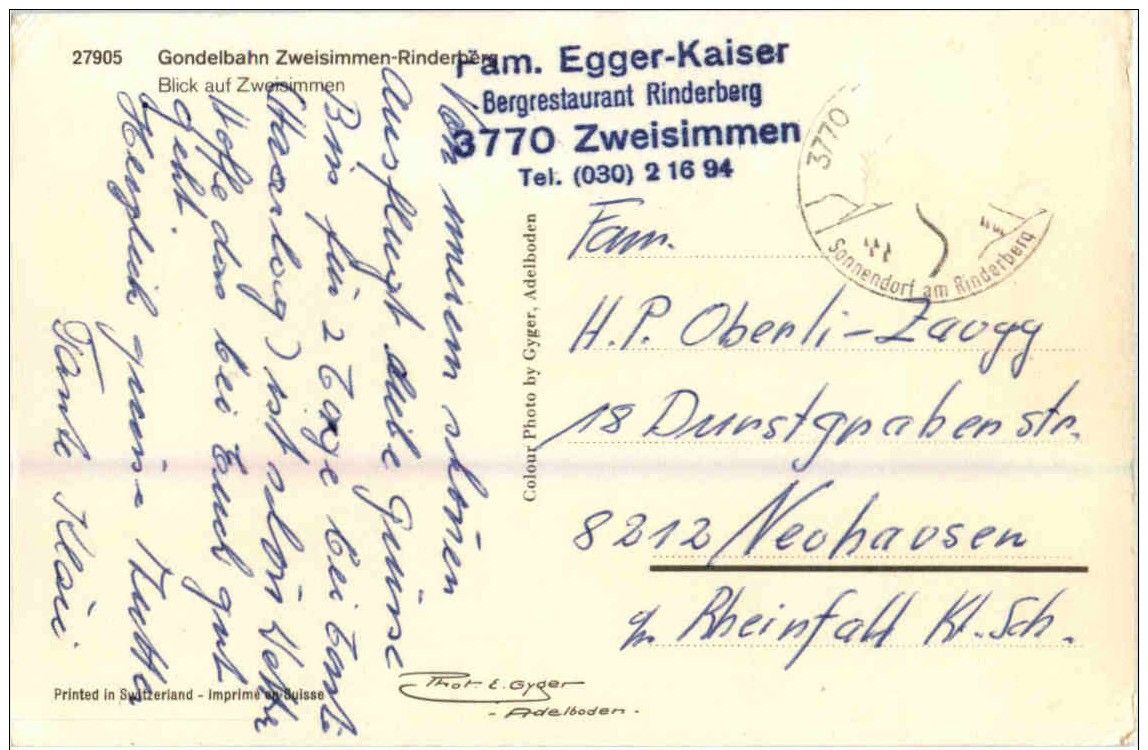 27905 Gondelbahn Zweisimmen-Rinderberg
Blick auf Zweisimmen
Fam. Egger-Kaiser
Bergrestaurant Rinderberg
3770 Zweisimmen
Tel. (030) 2 16 94
3770
Sonnendorf am Rinderberg
Von meinem schönen
Ausflug liebe Grüsse
Bin für 2 Tage bei
ist schön
Hoffe das bei Euch gut
geht.
Herzlich
Tante Klösi.
Colour Photo by Gyger, Adelboden
Fam.
H.P. Oberli-Zaugg
18 Durstgraben str.
8212 Neuhausen
a. Rheinfall Kt. Sch.
Printed in Switzerland - Imprimé en Suisse
Phot. E. Gyger
- Adelboden -